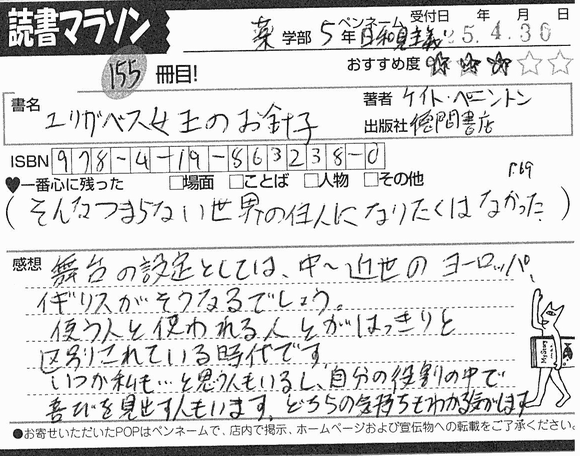 読書マラソン
薬 学部 5年 ペンネーム 日和見主義 受付日 年 月 日
25.4.30
155 冊目!
おすすめ度 ☆☆☆☆☆
書名 エリザベス女王のお針子
著者 ケイト・ペニントン
出版社 徳間書店
ISBN 978-4-19-863238-0
♥一番心に残った □場面 □ことば □人物 □その他
P.69
(そんなつまらない世界の住人になりたくはなかった)
感想 舞台の設定としては、中〜近世のヨーロッパ、
イギリスがそうなるでしょう。
使う人と使われる人とがはっきりと
区別されている時代です。
いつか私も…と思う人もいるし、自分の役割の中で
喜びを見出す人もいます。どちらの気持ちもわかる気がします
●お寄せいただいたPOPはペンネームで、店内で掲示、ホームページおよび宣伝物への転載をご了承ください。